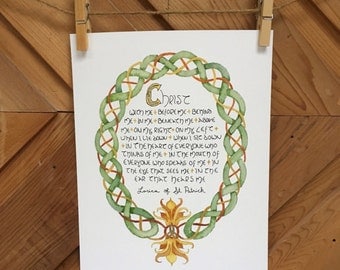 Christ
with me + before me + behind
me + in me + beneath me + above
me + on my right + on my left +
when I lie down + when I sit down
+ in the heart of everyone who
thinks of me + in the mouth of
everyone who speaks of me + in
the eye that sees me + in the
ear that hears me
Lorica of St Patrick